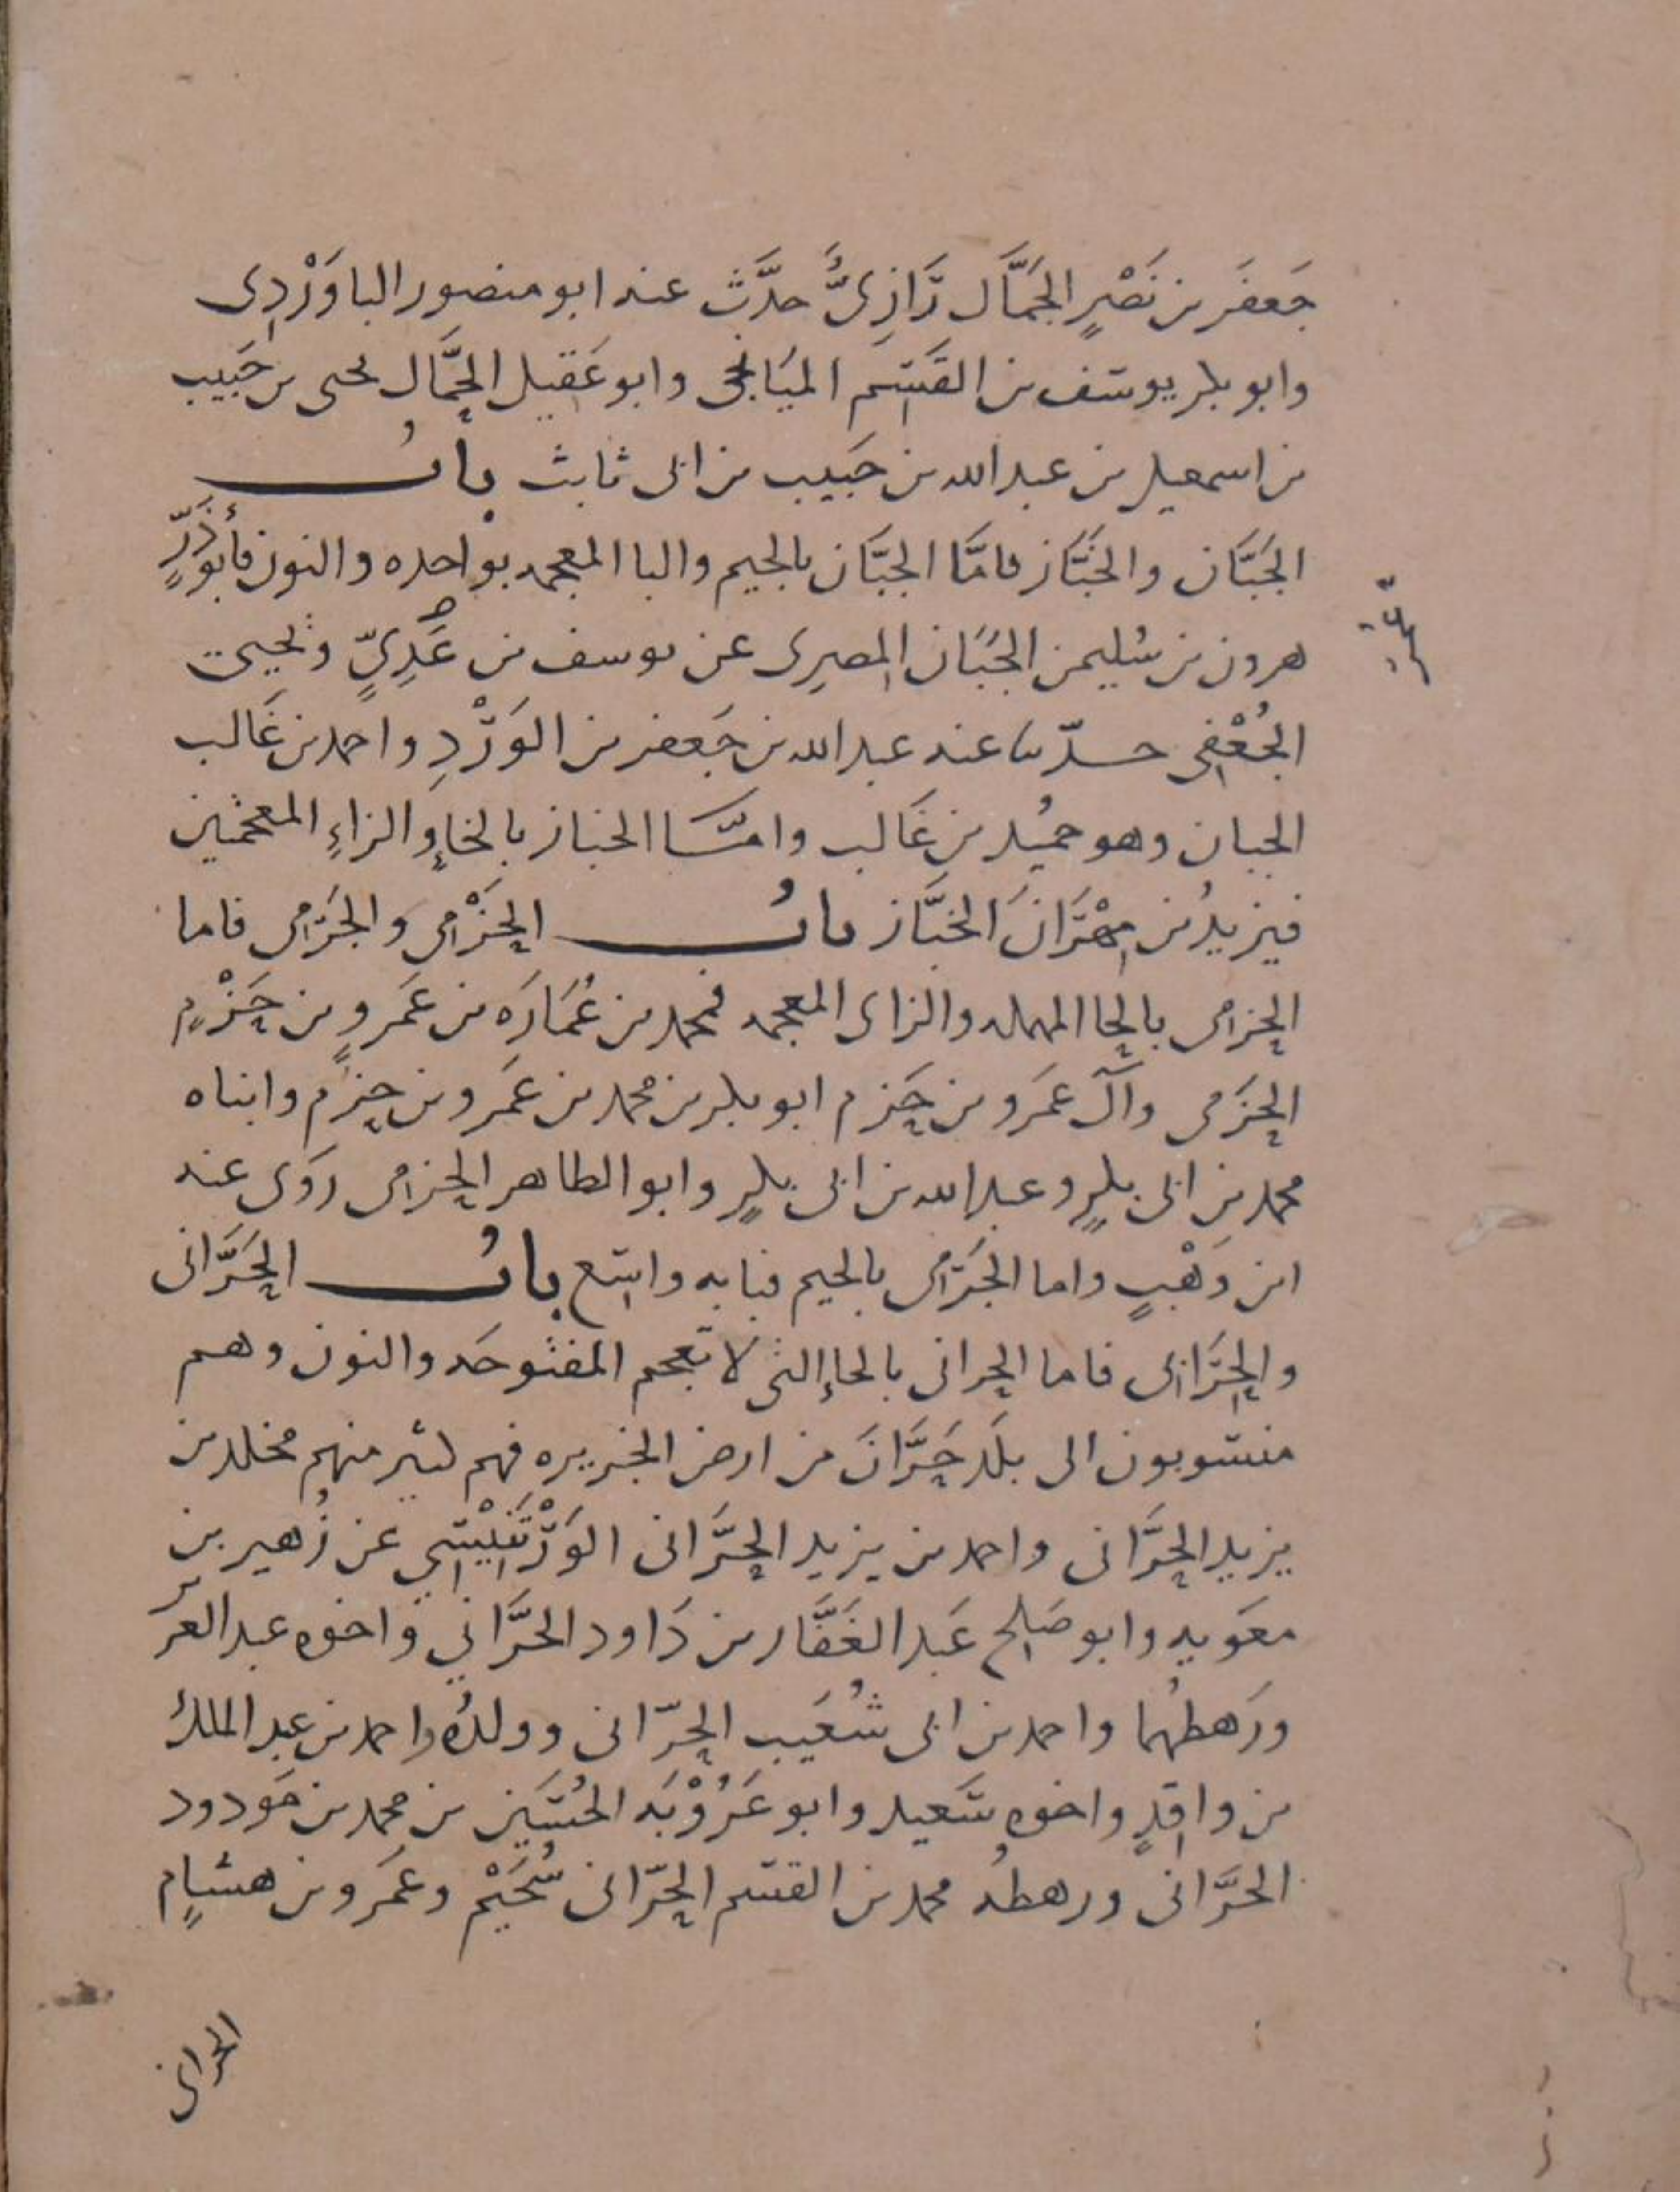 جَعفَر بن نَصْرٍ الجَمَّال رَّازِىٌّ حدَّث عنه ابو منصور الباوَرْدِى
وابو بكر يوسف بن القسم الميَانجى وابو عَقيل الجمَّال يحيى بن حَبيب
بن اسمعيل بن عبد الله بن حَبيب بن ابى ثابت بابُ
الجَبَّان والخَبَّاز فامَّا الجبَّان بالجيم والبا المعجمه بواحده والنون فأبو ذَرٍّ
هرون بن سُليمن الجَبَّان المِصرى عن يوسف بن عَدِيٍّ ويحيى
الجُعْفِى حدّثنا عنه عبد الله بن جَعفر بن الوَرْدِ واحمد بن غَالب
الجبان وهو حميُد بن غَالب وامَّا الخباز بالخاءِ والزاءِ المعجمتين
فيزيدُ بن مِهْرَانَ الخبَّاز بابُ الحَزْمِى والجَرْمِى فاما
الحزمِى بالحا المهمله والزاى المعجمه فمحمد بن عُمَارَه بن عَمروٍ بن حَزْمٍ
الحزَمى وآل عمَرو بن حَزم ابو بكر بن محمد بن عَمرو بن حزم وابناه
محمد بن ابى بكرٍ وعبد الله بن ابى بكرٍ وابو الطاهر الحزمِى روَى عنه
ابن وَهْبٍ واما الجَرْمِى بالجيم فبابه واسَع بابُ الحَرَّانى
والحِرَّابى فاما الحرانى بالحاءِ التى لا تعجم المفتوحَه والنون وهم
منسوبون الى بلَد حَرَّانَ من ارض الجزيره فهم كثير منهم مخلد بن
يزيد الحَرَّانى واحمد بن يزيد الحَرَّانى الوَرْتَنِيْسِي عن زُهير بن
معَويه وابو صَلح عَبد الغَفَّار بن دَاود الحرَّاني واخوه عبد العز
ورَهطهُما واحمد بن ابى شُعَيب الحرّانى وولدُه واحمد بن عبد الملك
بن واقِدٍ واخوه سَعيد وابو عَرُوْبَه الحُسَين بن محمد بن مَودود
الحرَّانى ورهطُه محمد بن القسم الحرّانى سُحَيْم وعَمرو بن هشامٍ
الحرانى